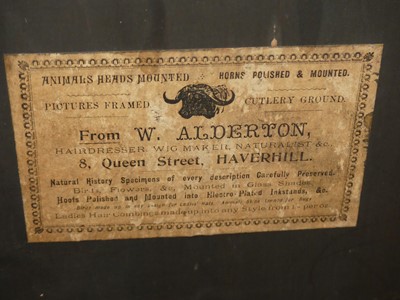 ANIMALS HEADS MOUNTED ÷ HORNS POLISHED & MOUNTED.
PICTURES FRAMED CUTLERY GROUND.
From W. ALDERTON,
HAIRDRESSER, WIG MAKER, NATURALIST &c.
8, Queen Street, HAVERHILL.
Natural History Specimens of every description Carefully Preserved.
Birds, Flowers, &c, Mounted in Glass Shades,
Hoofs Polished and Mounted into Electro Plate Inkstands, &c.
Ladies Hair Combings made up into any Style from